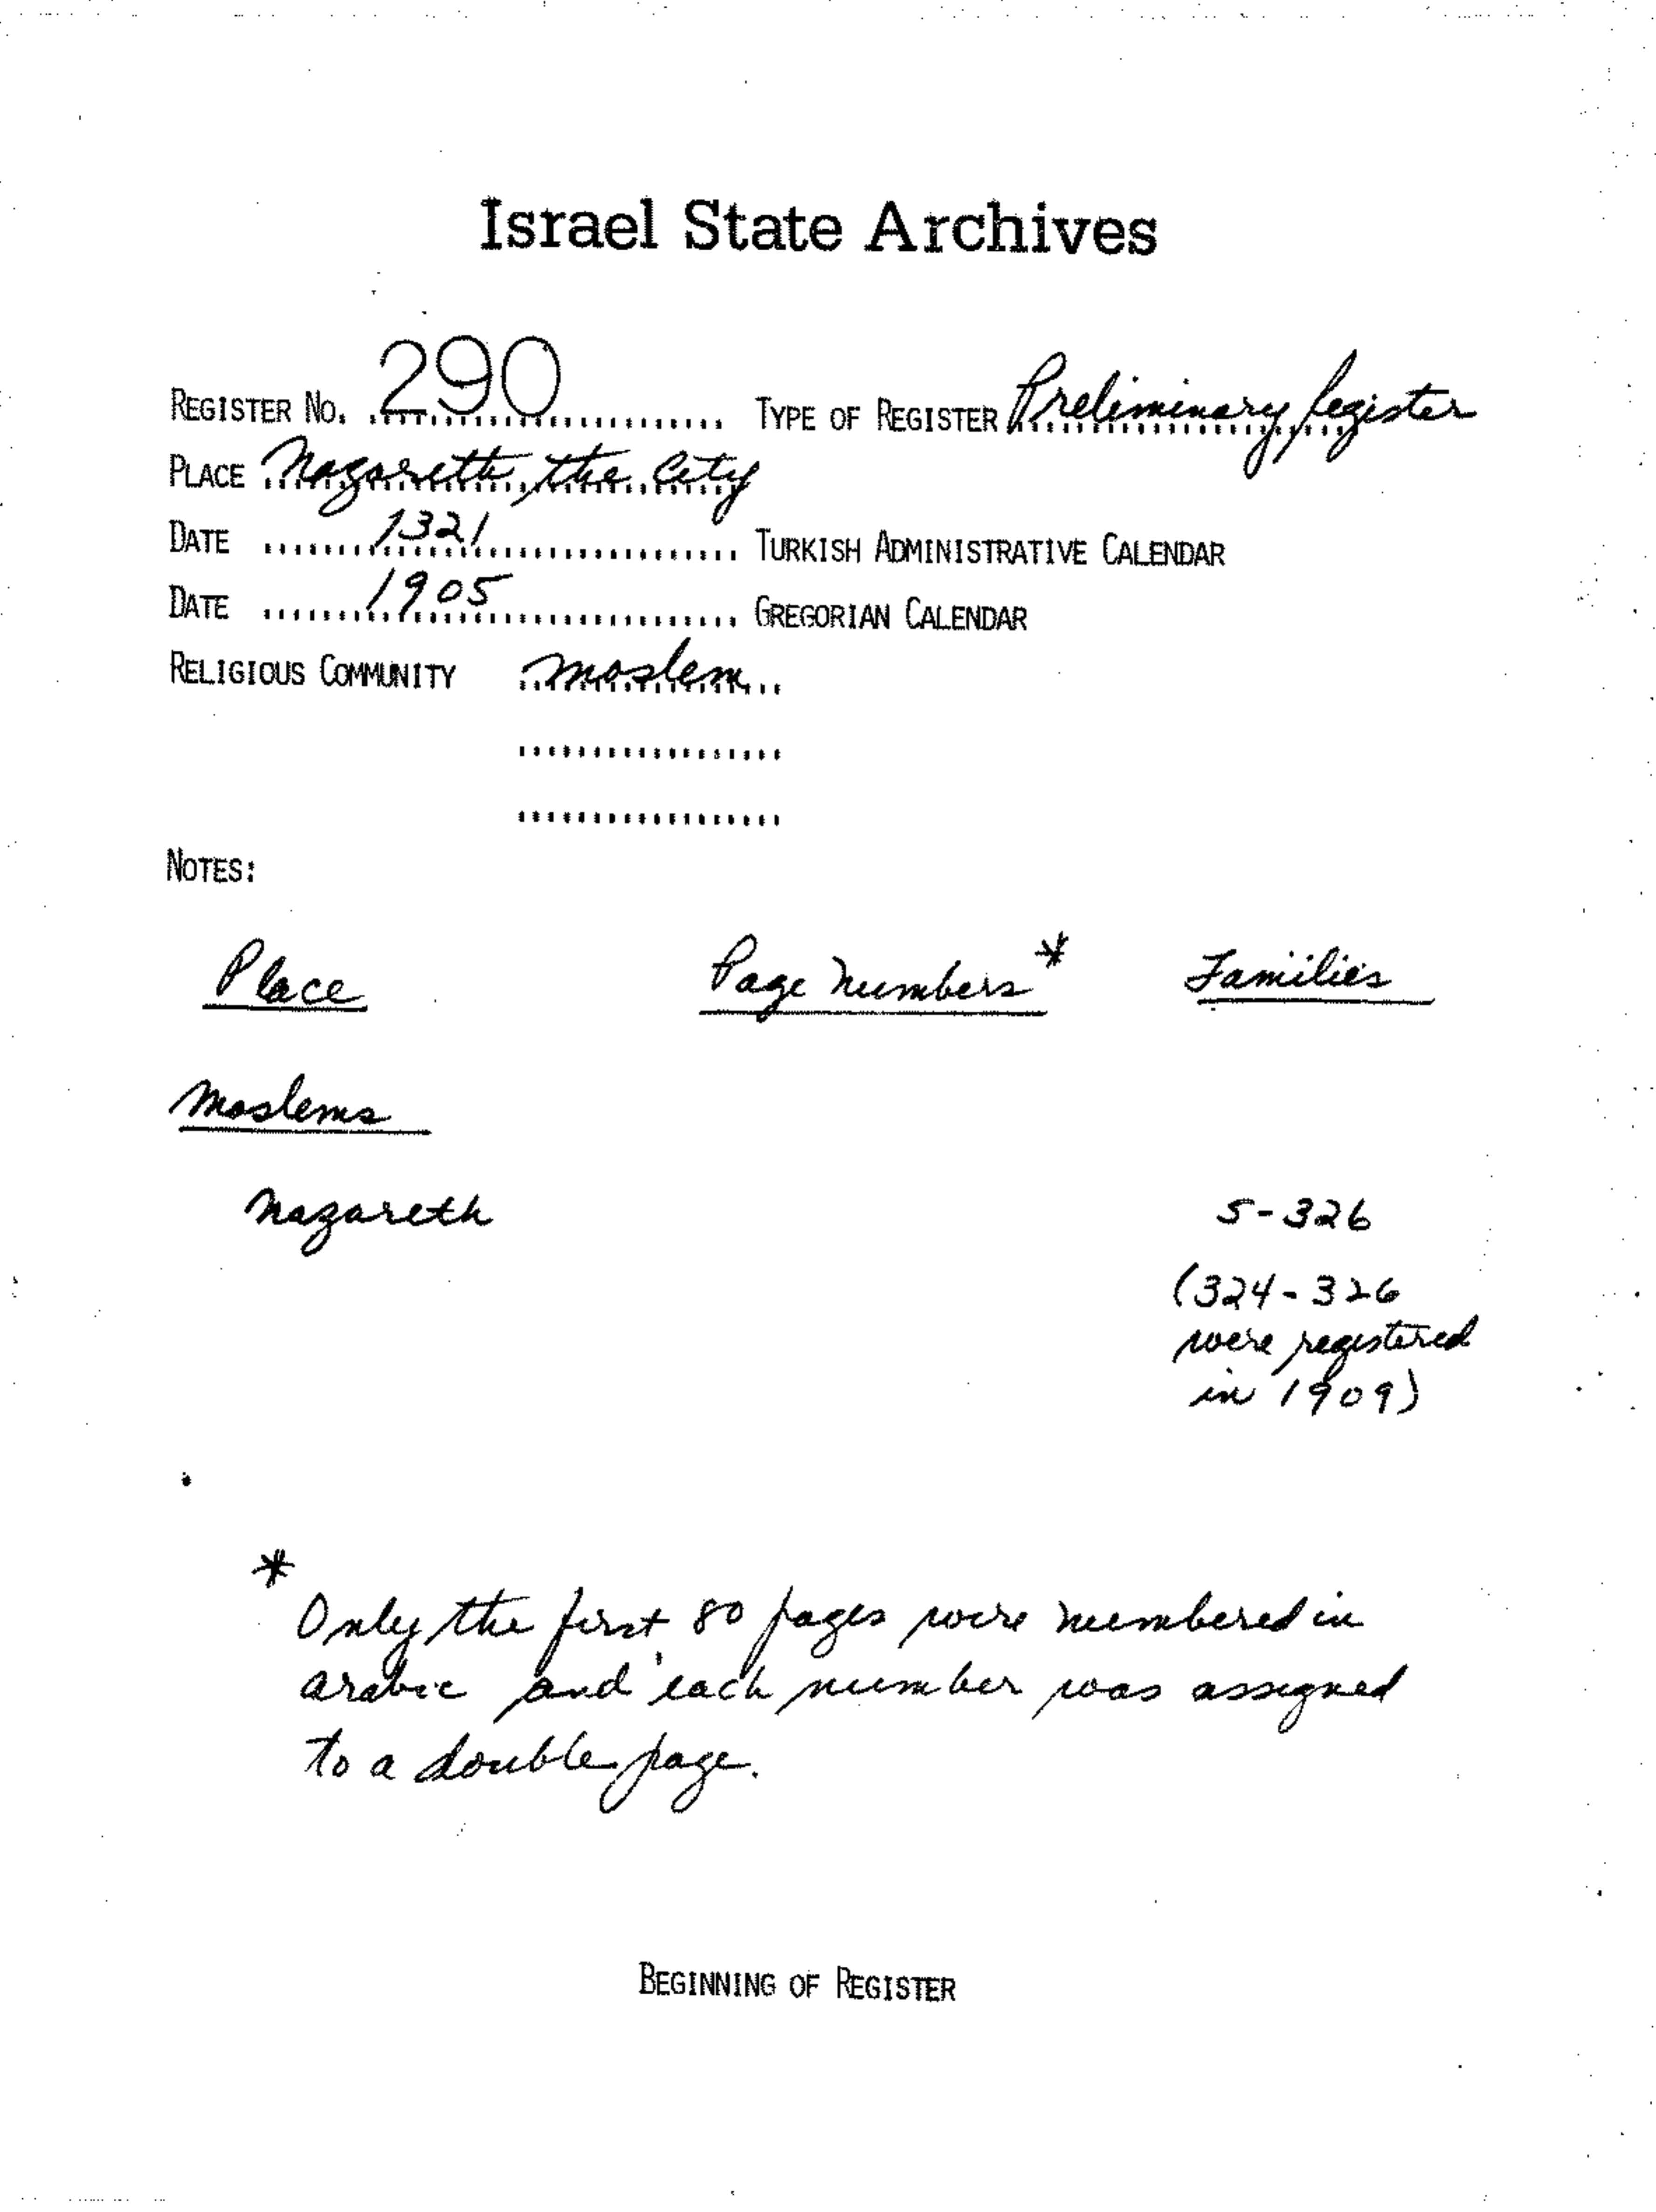 Israel State Archives
REGISTER NO. 290 TYPE OF REGISTER Preliminary Register
PLACE Nazareth, the City
DATE 1321 TURKISH ADMINISTRATIVE CALENDAR
DATE 1905 GREGORIAN CALENDAR
RELIGIOUS COMMUNITY Moslem
NOTES:
Place Page Numbers* Families
Moslems
Nazareth 5-326
(324-326
were registered
in 1909)
*
Only the first 80 pages were numbered in
arabic and each number was assigned
to a double page.
BEGINNING OF REGISTER